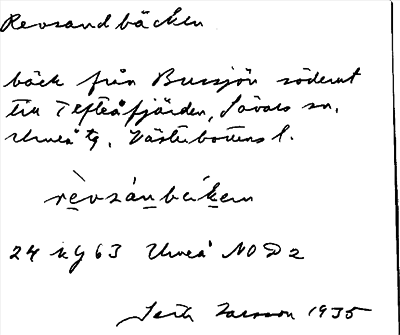 Revsandbäcken
bäck från Bussjön söderut
till Tefteåfjärden, Sävars sn,
Umeå tg, Västerbottens l.
rèvsánbäkem
24 kg 63 Umeå NO D2
Larsson 1935